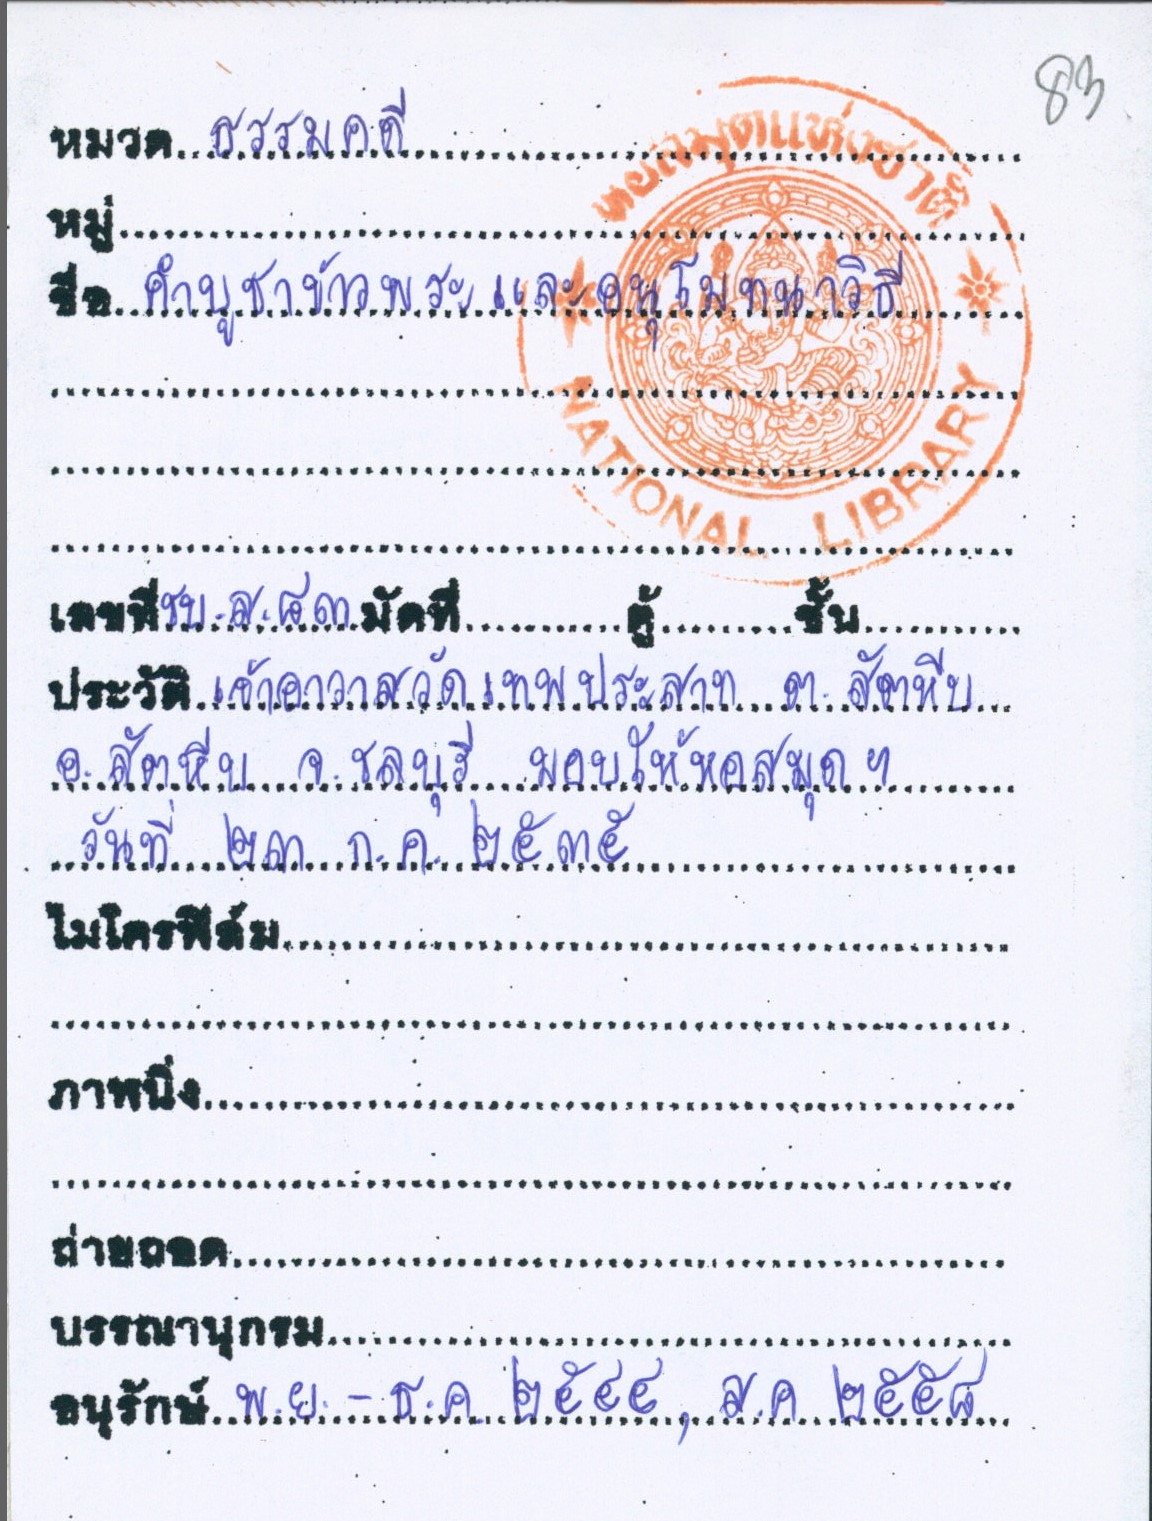 83
หอสมุดแห่งชาติ
NATIONAL LIBRARY
หมวด ธรรมคดี
หมู่
ชื่อ คำบูชาข้าวพระและอนุโมทนาวิธี
เลขที่ ชบ.ส.๘๓ มัดที่ ตู้ ชั้น
ประวัติ เจ้าอาวาสวัดเทพประสาท ต. สัตหีบ
อ. สัตหีบ จ. ชลบุรี มอบให้หอสมุดฯ
วันที่ ๒๓ ก.ค. ๒๕๓๕
ไมโครฟิล์ม
ภาพนิ่ง
ถ่ายถอด
บรรณานุกรม
อนุรักษ์ พ.ย. - ธ.ค. ๒๕๔๔, ส.ค ๒๕๕๘